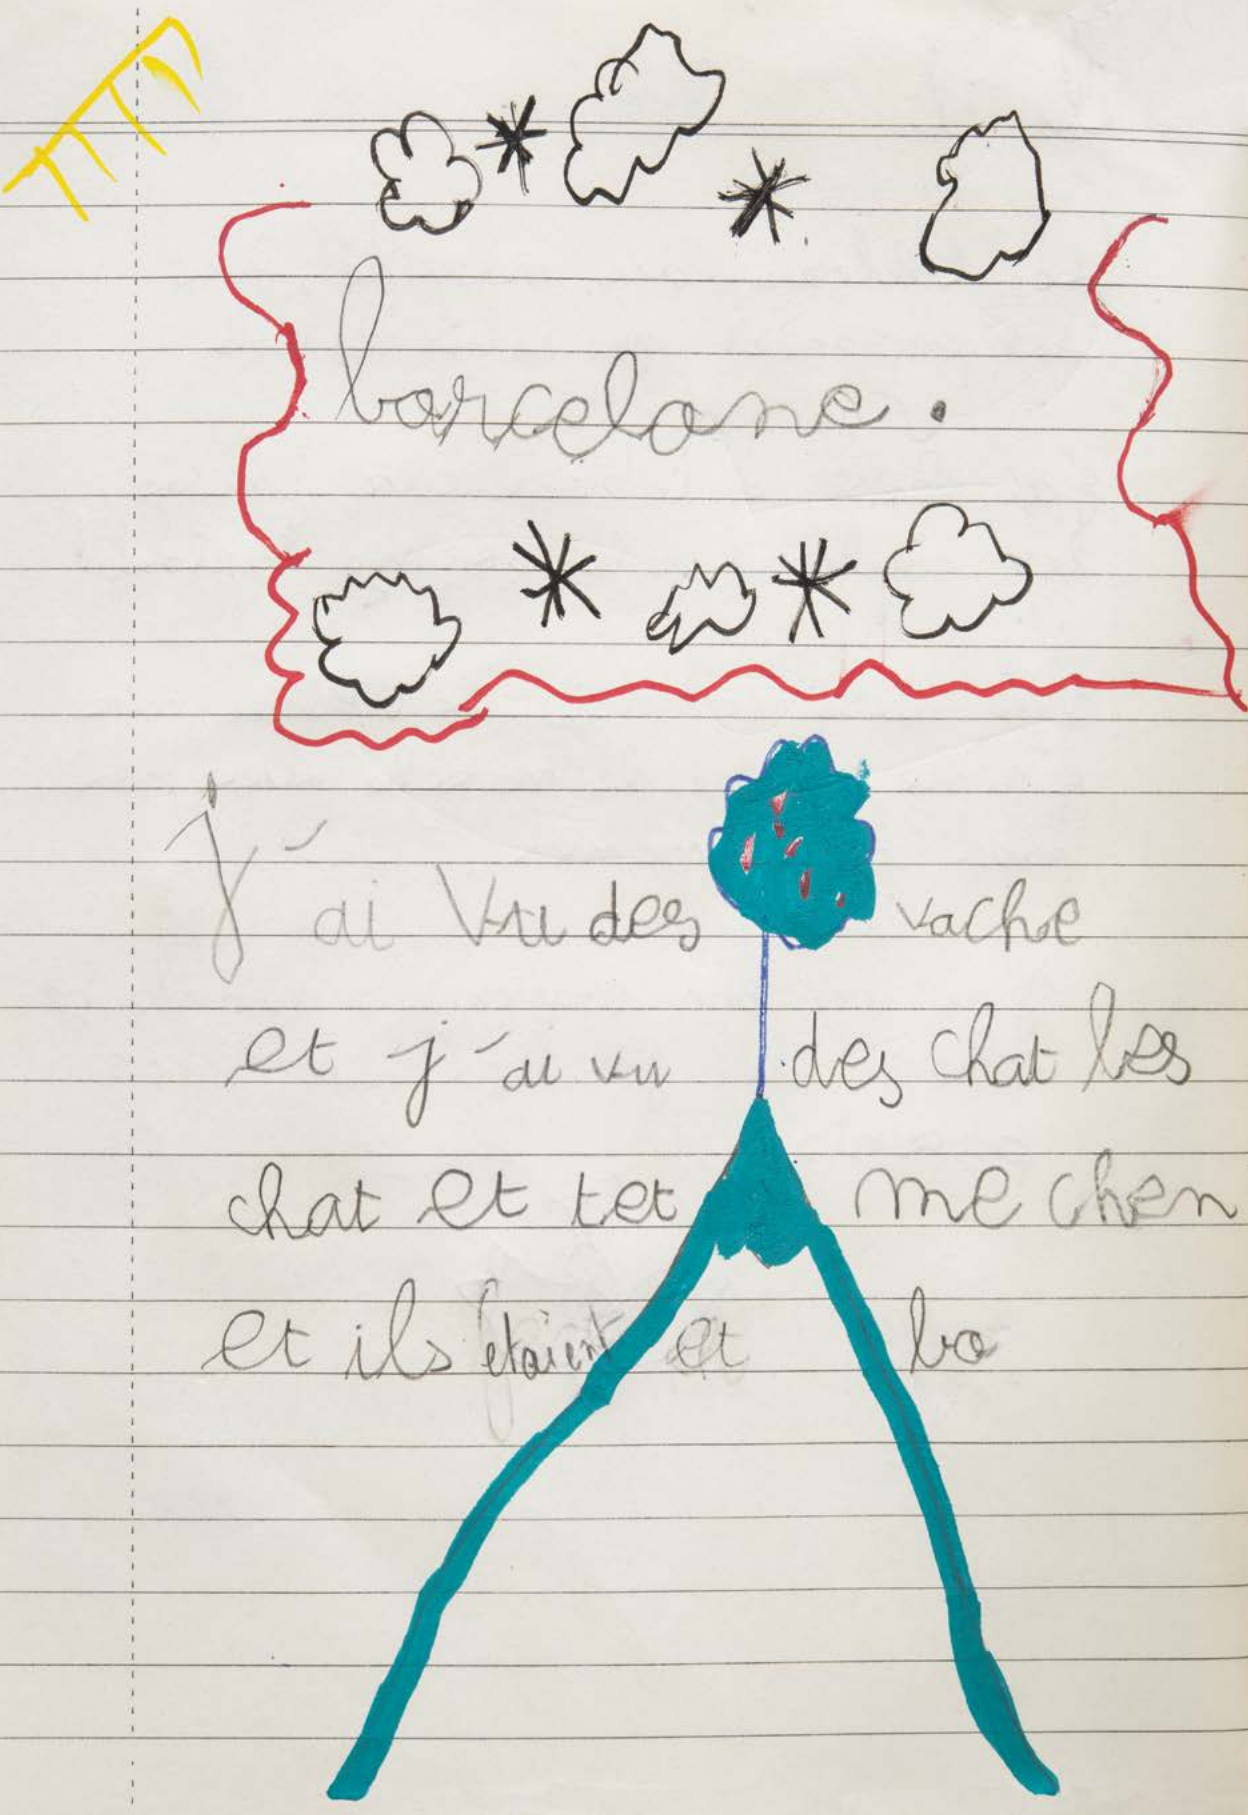 barcelone.
j'ai vu des vache
et j'ai vu des chat les
chat et tet me chen
et ils étaient et bo